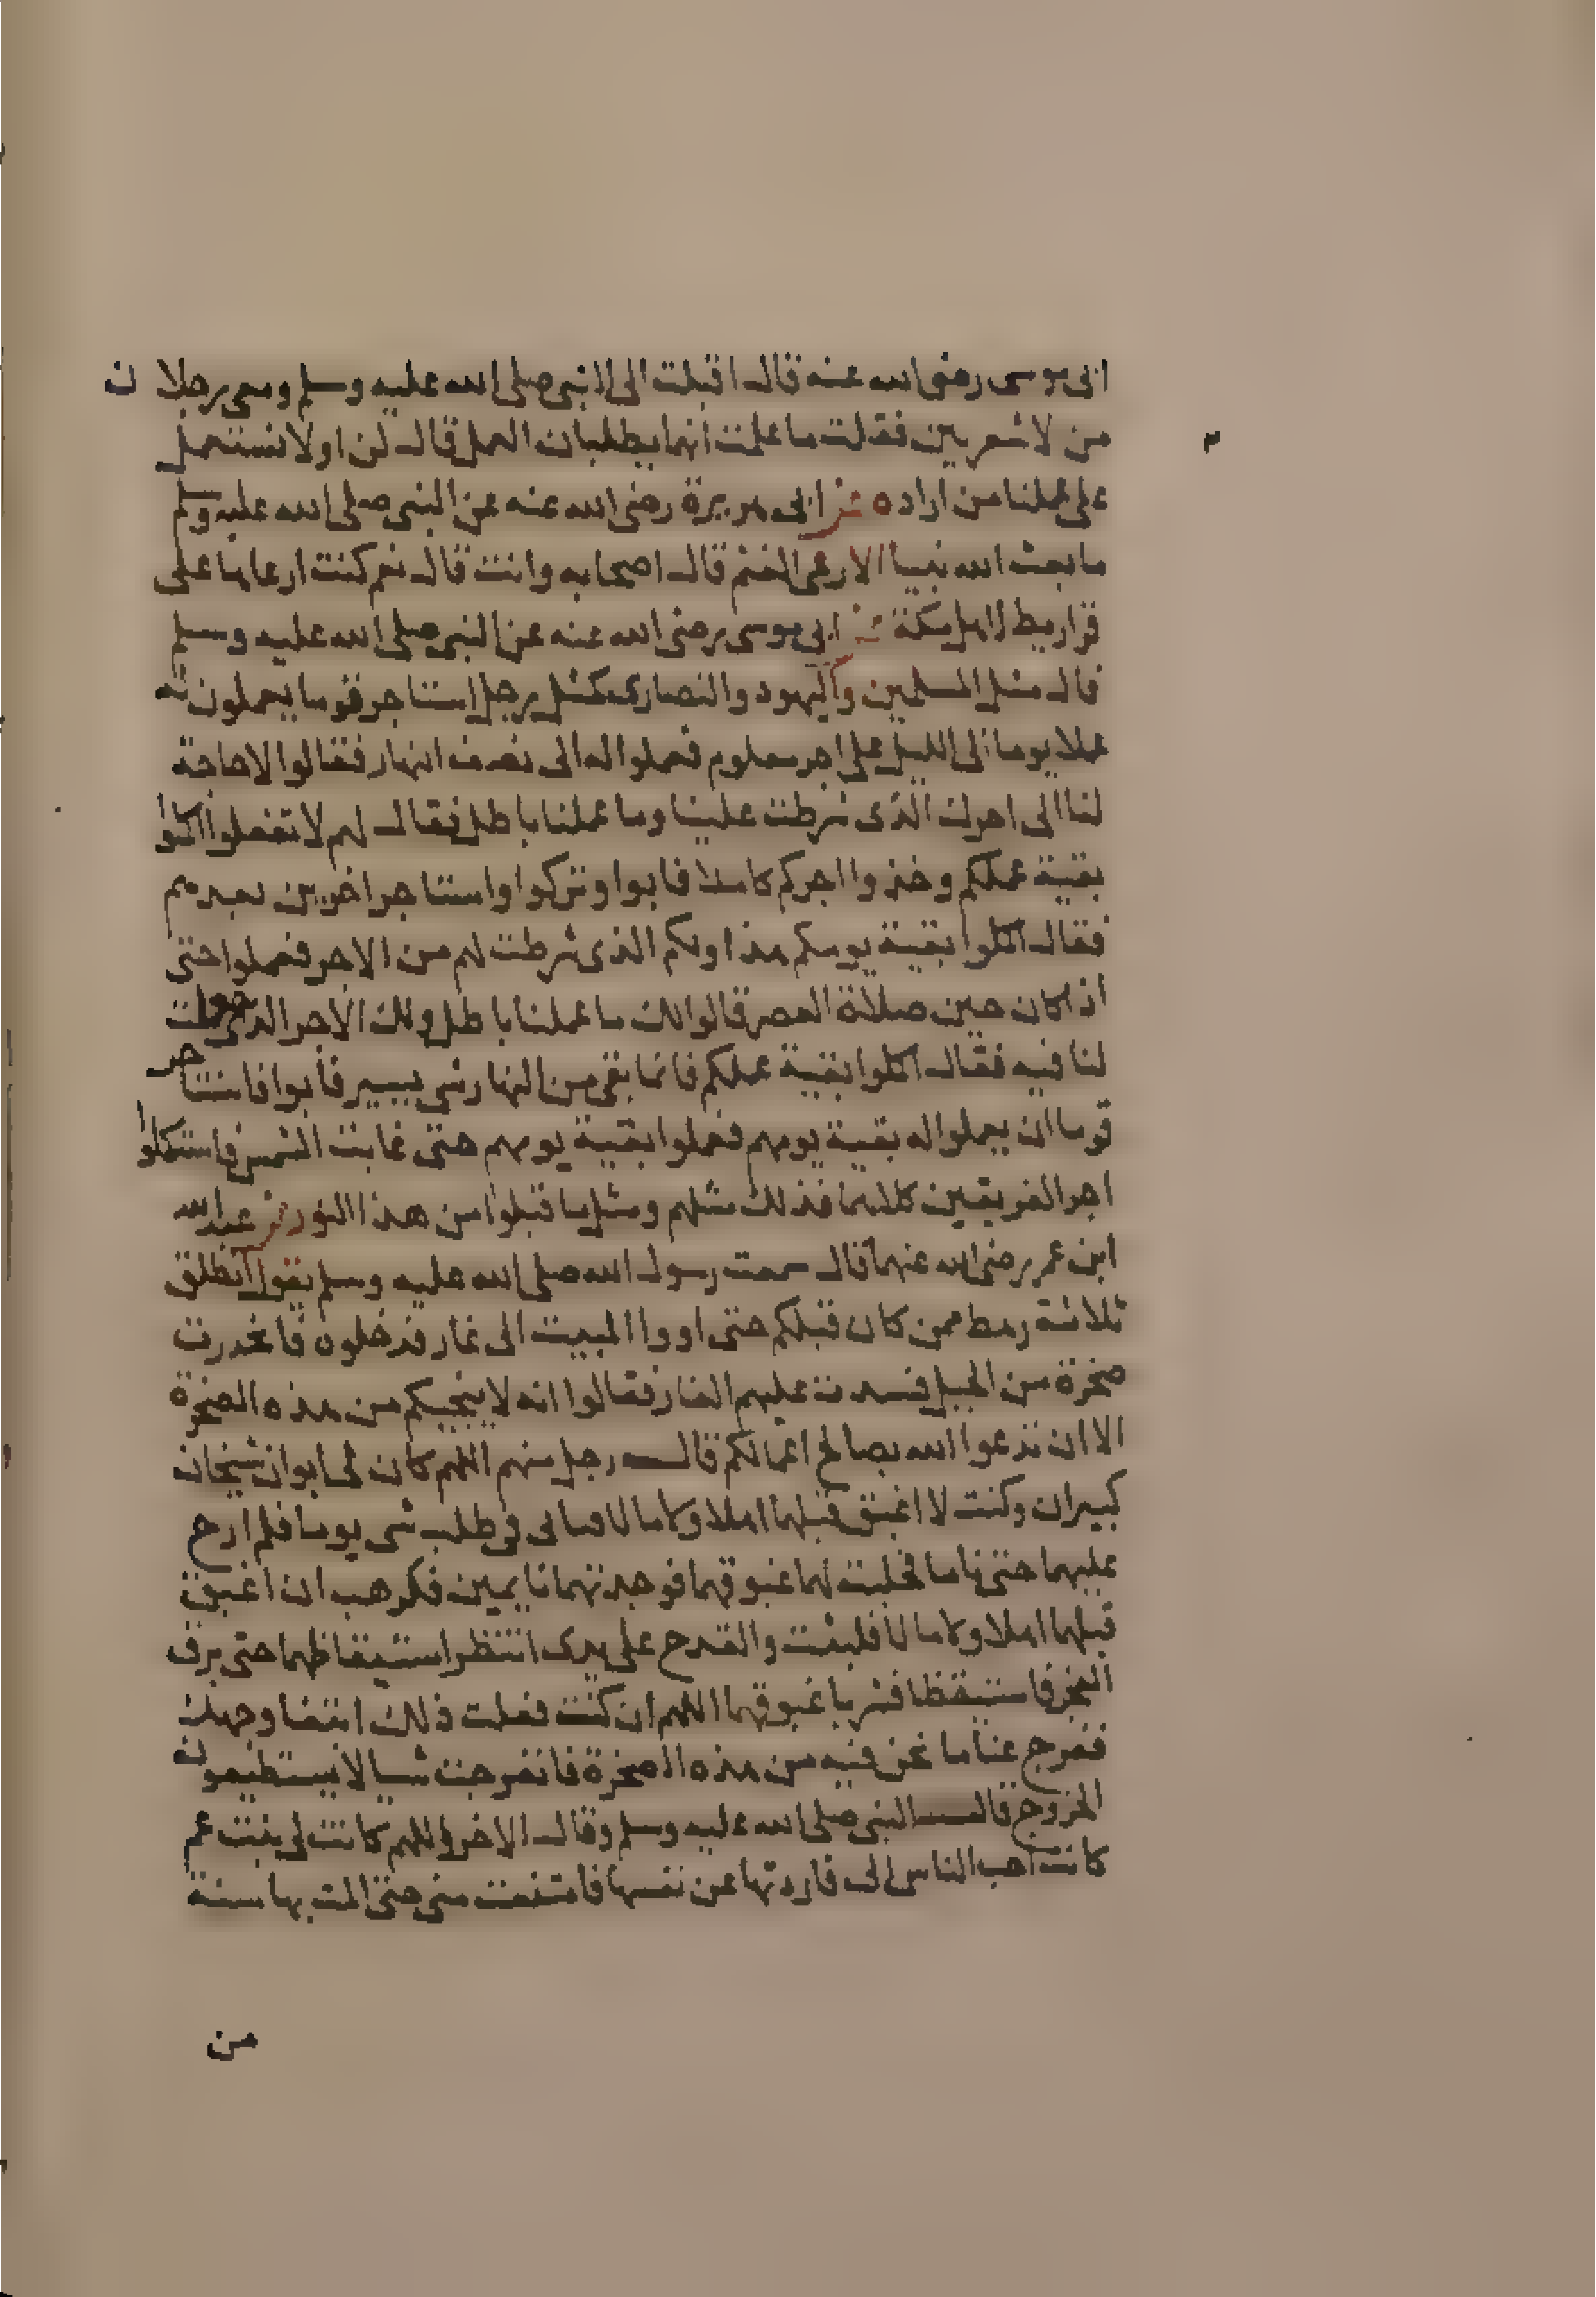 ابى موسى رضى الله عنه قال اقبلت الى النبى صلى الله عليه وسلم ومعى رجلان
من الاشعريين فقلت ما علمت انهما يطلبان العمل قال لن اولا نستعمل
على عملنا من اراده عن ابى هريرة رضى الله عنه عن النبى صلى الله عليه وسلم
ما بعث الله نبيا الا رعى الغنم قال اصحابه وانت قال نعم كنت ارعاها على
قراريط لاهل مكة عن ابى موسى رضى الله عنه عن النبى صلى الله عليه وسلم
قال مثل المسلمين واليهود والنصارى كمثل رجل استاجر قوما يعملون له
عملا يوما الى الليل على اجر معلوم فعملوا له الى نصف النهار فقالوا لا حاجة
لنا الى اجرك الذى شرطت علينا وما عملنا باطل فقال لهم لا تفعلوا اكملوا
بقية عملكم وخذوا اجركم كاملا فابوا وتركوا واستاجر اخرين بعدهم
فقال اكملوا بقية يومكم هذا ولكم الذى شرطت لهم من الاجر فعملوا حتى
اذا كان حين صلاة العصر قالوا لك ما عملنا باطل ولك الاجر الذى جعلت
لنا فيه فقال اكملوا بقية عملكم فانما بقى من النهار شى يسير فأبوا فاستاجر
قوما ان يعملوا له بقية يومهم فعملوا بقية يومهم حتى غابت الشمس فاستكملوا
اجر الفريقين كليهما فذلك مثلهم ومثل ما قبلوا من هذا النور عن عبد الله
ابن عمر رضى الله عنهما قال سمعت رسول الله صلى الله عليه وسلم يقول انطلق
ثلاثة رهط ممن كان قبلكم حتى اووا المبيت الى غار فدخلوه فانحدرت
صخرة من الجبل فسدت عليهم الغار فقالوا انه لا ينجيكم من هذه الصخرة
الا ان تدعوا الله بصالح اعمالكم قال رجل منهم اللهم كان لى ابوان شيخان
كبيران وكنت لا اغبق قبلهما اهلا ولا مالا فنابى فى طلب شى يوما فلم ارح
عليهما حتى ناما فحلبت لهما غبوقهما فوجدتهما نايمين فكرهت ان اغبق
قبلهما اهلا ولا مالا فلبثت والقدح على يدى انتظر استيقاظهما حتى برق
الفجر فاستيقظا فشربا غبوقهما اللهم ان كنت فعلت ذلك ابتغا وجهك
ففرج عنا ما نحن فيه من هذه الصخرة فانفرجت شيا لا يستطيعون
الخروج قال النبى صلى الله عليه وسلم وقال الاخر اللهم كانت لى بنت عم
كانت احب الناس الى فاردتها عن نفسها فامتنعت منى حتى المت بها سنة
من